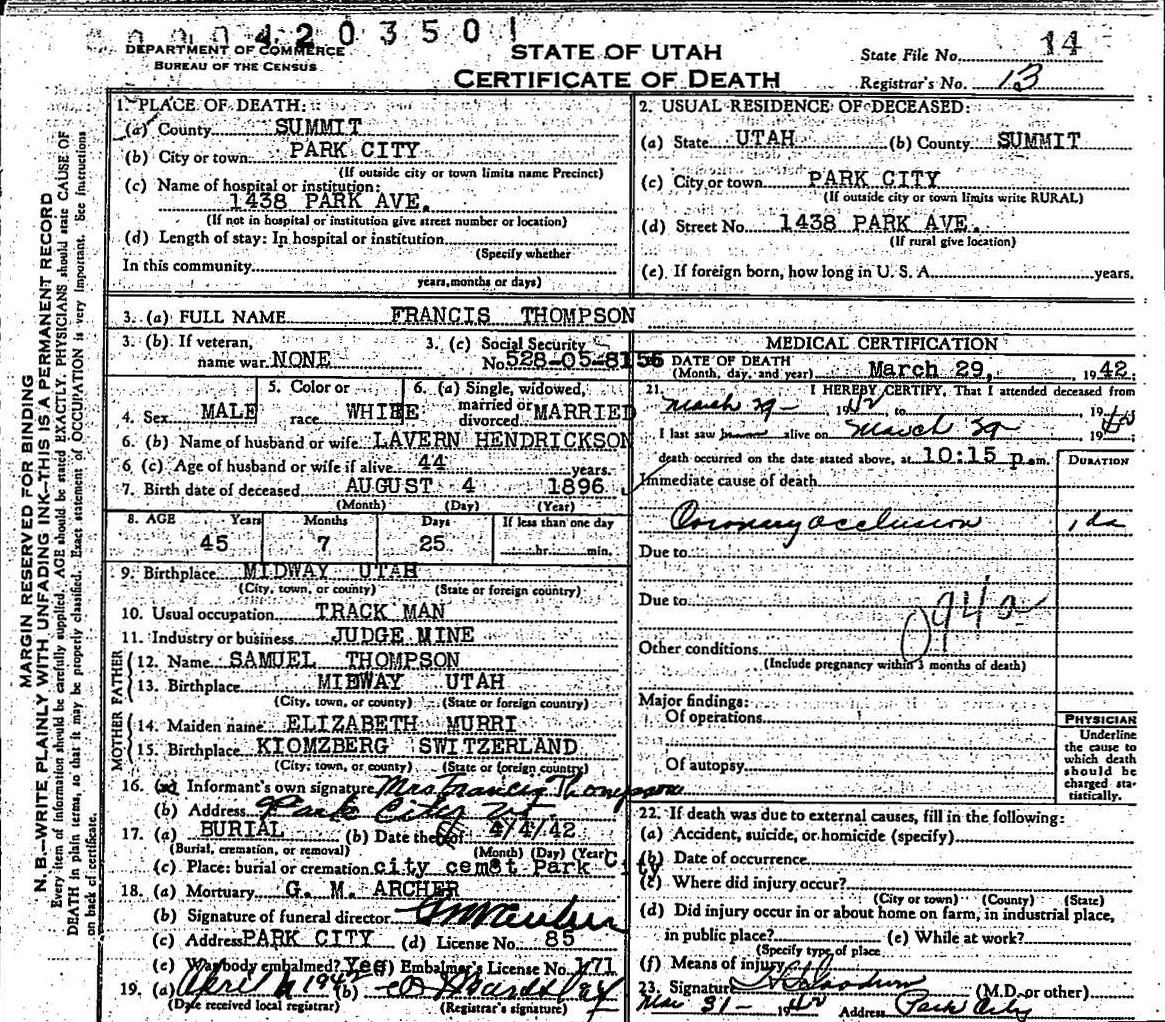 420350
DEPARTMENT OF COMMERCE
BUREAU OF THE CENSUS
STATE OF UTAH
CERTIFICATE OF DEATH
State File No. 14
Registrar's No. 13
MARGIN RESERVED FOR BINDING
N. B.—WRITE PLAINLY WITH UNFADING INK—THIS IS A PERMANENT RECORD
Every item of information should be carefully supplied. AGE should be stated EXACTLY. PHYSICIANS should state CAUSE OF
DEATH in plain terms, so that it may be properly classified. Exact statement of OCCUPATION is very important. See instructions
on back of certificate.
1. PLACE OF DEATH:
(a) County SUMMIT
(b) City or town PARK CITY
(If outside city or town limits name Precinct)
(c) Name of hospital or institution:
1438 PARK AVE.
(If not in hospital or institution give street number or location)
(d) Length of stay: In hospital or institution
(Specify whether
In this community
years, months or days)
2. USUAL RESIDENCE OF DECEASED:
(a) State UTAH (b) County SUMMIT
(c) City or town PARK CITY
(If outside city or town limits write RURAL)
(d) Street No. 1438 PARK AVE.
(If rural give location)
(e) If foreign born, how long in U. S. A. years.
3. (a) FULL NAME FRANCIS THOMPSON
3. (b) If veteran,
name war NONE
3. (c) Social Security
No. 528-05-8156
4. Sex MALE
5. Color or
race WHIEE
6. (a) Single, widowed,
married or
divorced MARRIED
6. (b) Name of husband or wife LAVERN HENDRICKSON
6 (c) Age of husband or wife if alive 44 years.
7. Birth date of deceased AUGUST 4 1896
(Month) (Day) (Year)
8. AGE Years Months Days If less than one day
45 7 25 hr. min.
9. Birthplace MIDWAY UTAH
(City, town, or county) (State or foreign country)
10. Usual occupation TRACK MAN
11. Industry or business JUDGE MINE
FATHER
12. Name SAMUEL THOMPSON
13. Birthplace MIDWAY UTAH
(City, town, or county) (State or foreign country)
MOTHER
14. Maiden name ELIZABETH MURRI
15. Birthplace KIOMZBERG SWITZERLAND
(City, town, or county) (State or foreign country)
16. (a) Informant's own signature Mrs Francis Thompson
(b) Address Park City Ut.
17. (a) BURIAL (b) Date thereof 4/4/42
(Burial, cremation, or removal) (Month) (Day) (Year)
(c) Place: burial or cremation city cemet Park City
18. (a) Mortuary G. M. ARCHER
(b) Signature of funeral director
(c) Address PARK CITY (d) License No. 85
(e) Was body embalmed? Yes (f) Embalmer's License No. 171
19. (a) April 1942 (b)
(Date received local registrar) (Registrar's signature)
MEDICAL CERTIFICATION
DATE OF DEATH
(Month, day, and year) March 29, 1942
21. I HEREBY CERTIFY, That I attended deceased from
March 29 - 1942, to , 19
I last saw alive on March 29 1942;
death occurred on the date stated above, at 10:15 p.m.
DURATION
Immediate cause of death
Coronary occlusion 1 da
Due to
Due to
094a
Other conditions
(Include pregnancy within 3 months of death)
Major findings:
Of operations
Of autopsy
PHYSICIAN
Underline
the cause to
which death
should be
charged sta-
tistically.
22. If death was due to external causes, fill in the following:
(a) Accident, suicide, or homicide (specify)
(b) Date of occurrence
(c) Where did injury occur?
(City or town) (County) (State)
(d) Did injury occur in or about home on farm, in industrial place,
in public place? (e) While at work?
(Specify type of place
(f) Means of injury
23. Signature (M.D. or other)
Mar 31 - 1942 Address Park City